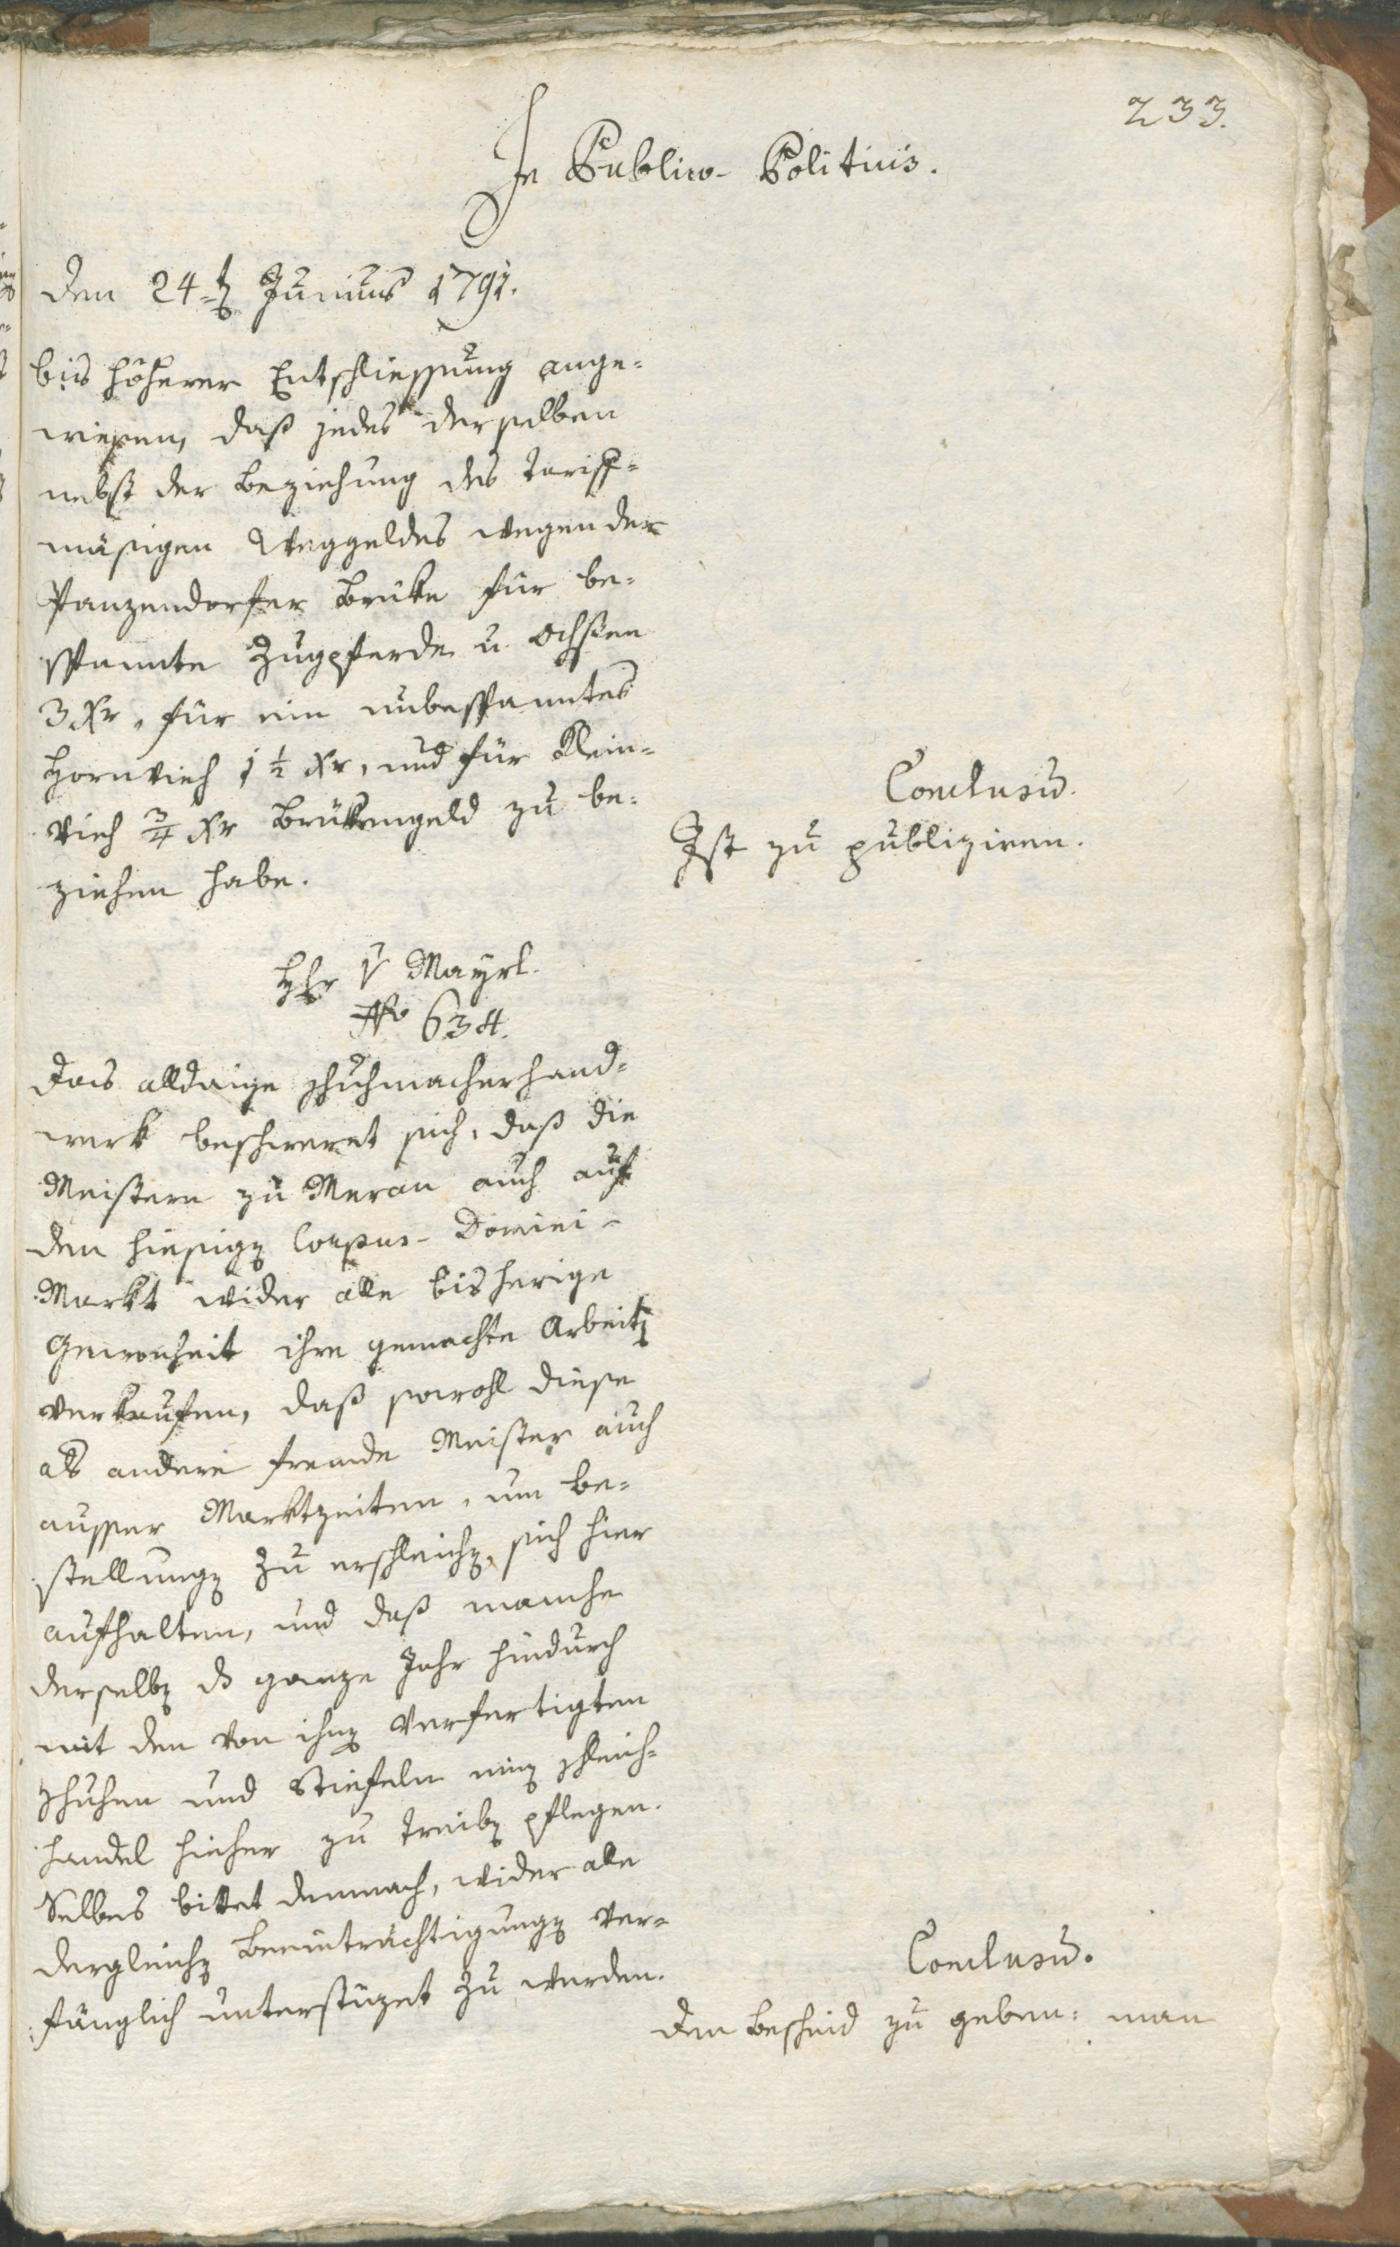 233.
In Publico-Politicis.
den 24-t Junius 1791.
bis höherer Entschliessung ange-
wiesen, daß jedes derselben
nebst der Beziehung des tariff-
mäsigen Weggeldes wegen der
Panzendorfer Brüke für be-
spannte Zugpferde u. Ochsen
3 Xr, für ein unbespanntes
Hornvieh 1 ½ Xr, und für Klein-
vieh ¾ Xr Brükengeld zu be-
ziehen habe.
Conclusũ.
Ist zu publiziren.
Hr v Mayrl.
No 634.
Das alldaige Schuhmacherhand-
werk beschweret sich, daß die
Meistern zu Meran auch auf
den hiesigen Corpus-Domini-
Markt wider alle bisherige
Gewonheit ihre gemachte Arbeiten
verkaufen, daß sowohl diese
als andere fremde Meister auch
ausser Marktzeiten, um Be-
stellungen zu erschleichen, sich hier
aufhalten, und daß manche
derselben ds ganze Jahr hindurch
mit den von ihnen verfertigten
Schuhen und Stiefeln einen Schleich-
handel hieher zu treiben pflegen.
Selbes bittet demnach, wider alle
dergleichen Beeinträchtigungen ver-
fänglich unterstüzet zu werden.
Conclusũ.
Den Bescheid zu geben: man